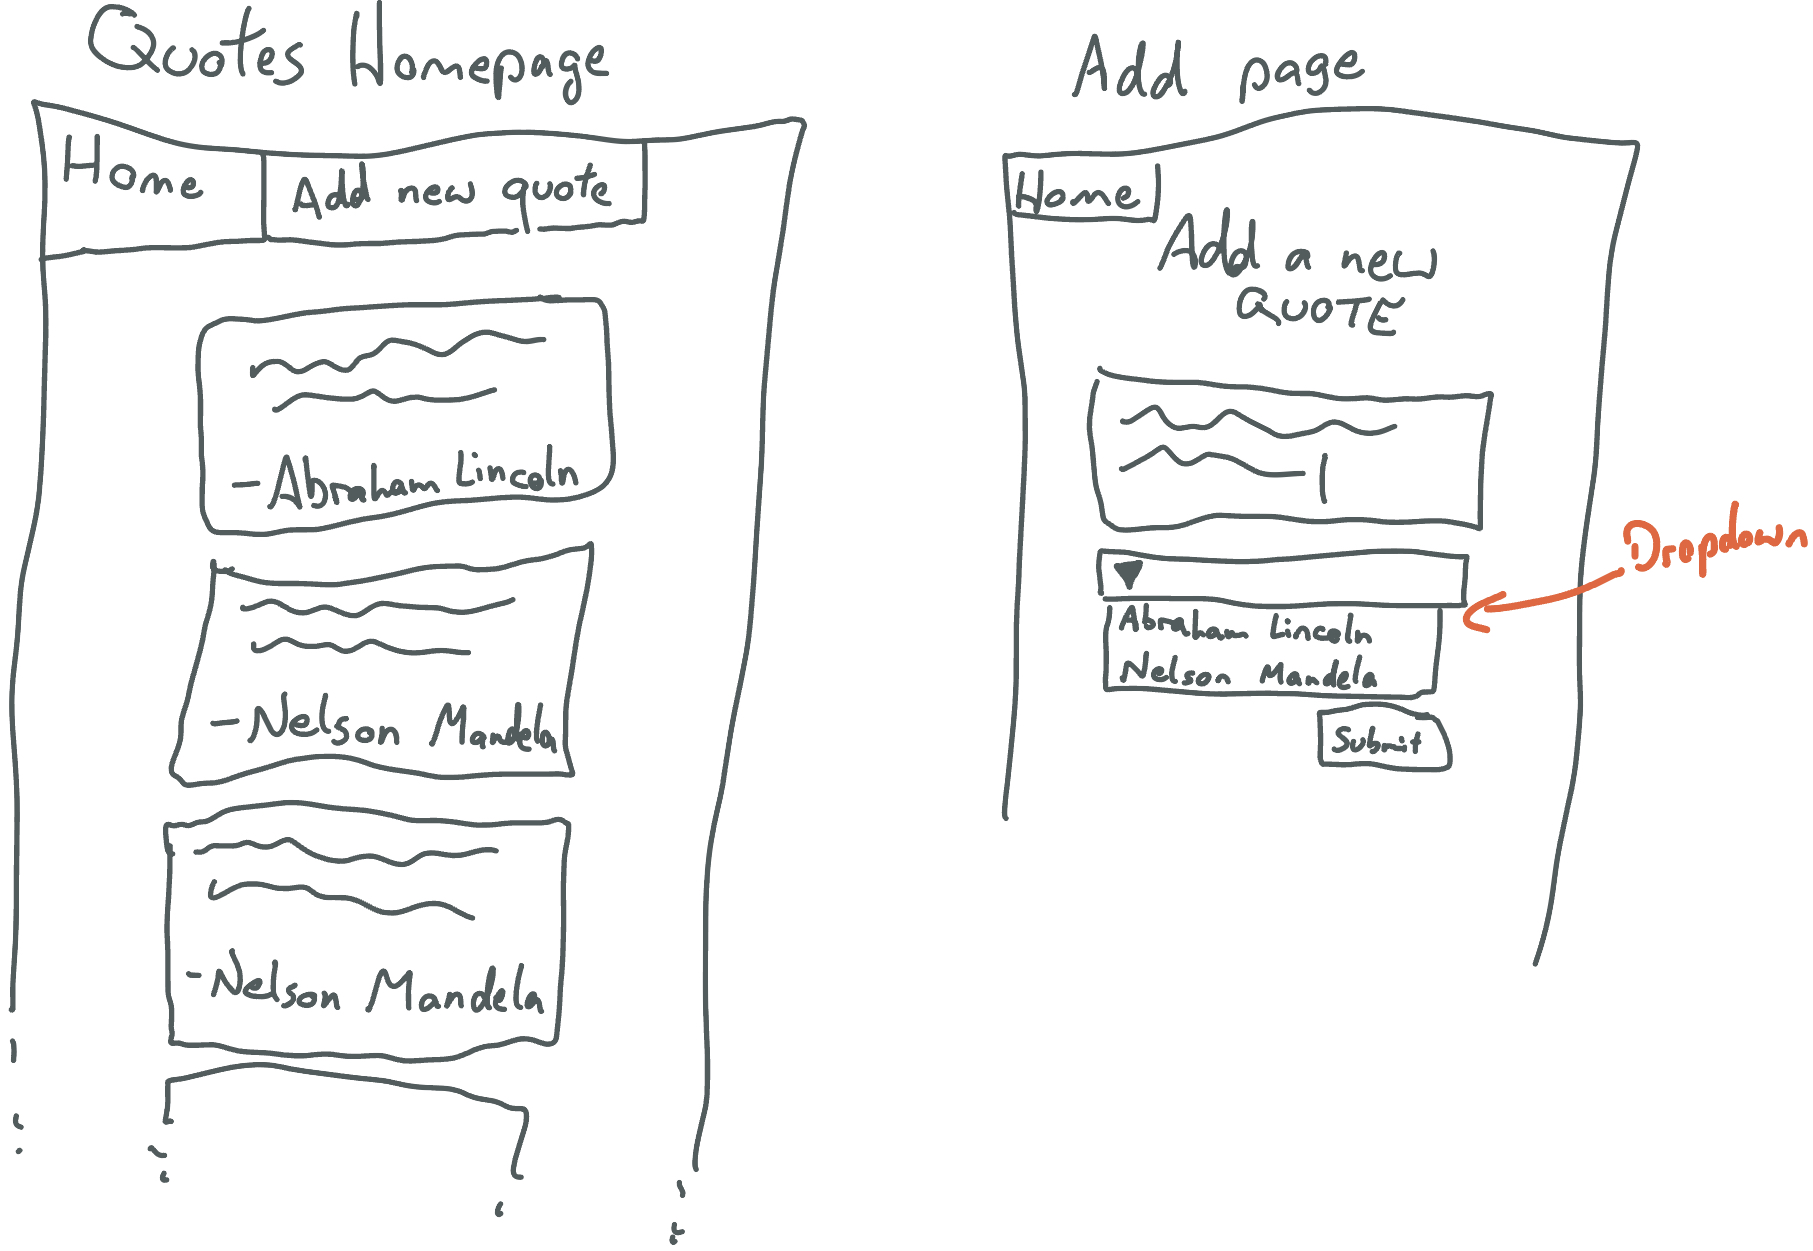 Quotes Homepage
Home
Add new quote
- Abraham Lincoln
- Nelson Mandela
- Nelson Mandela
Add page
Home
Add a new
QUOTE
Abraham Lincoln
Nelson Mandela
Submit
Dropdown